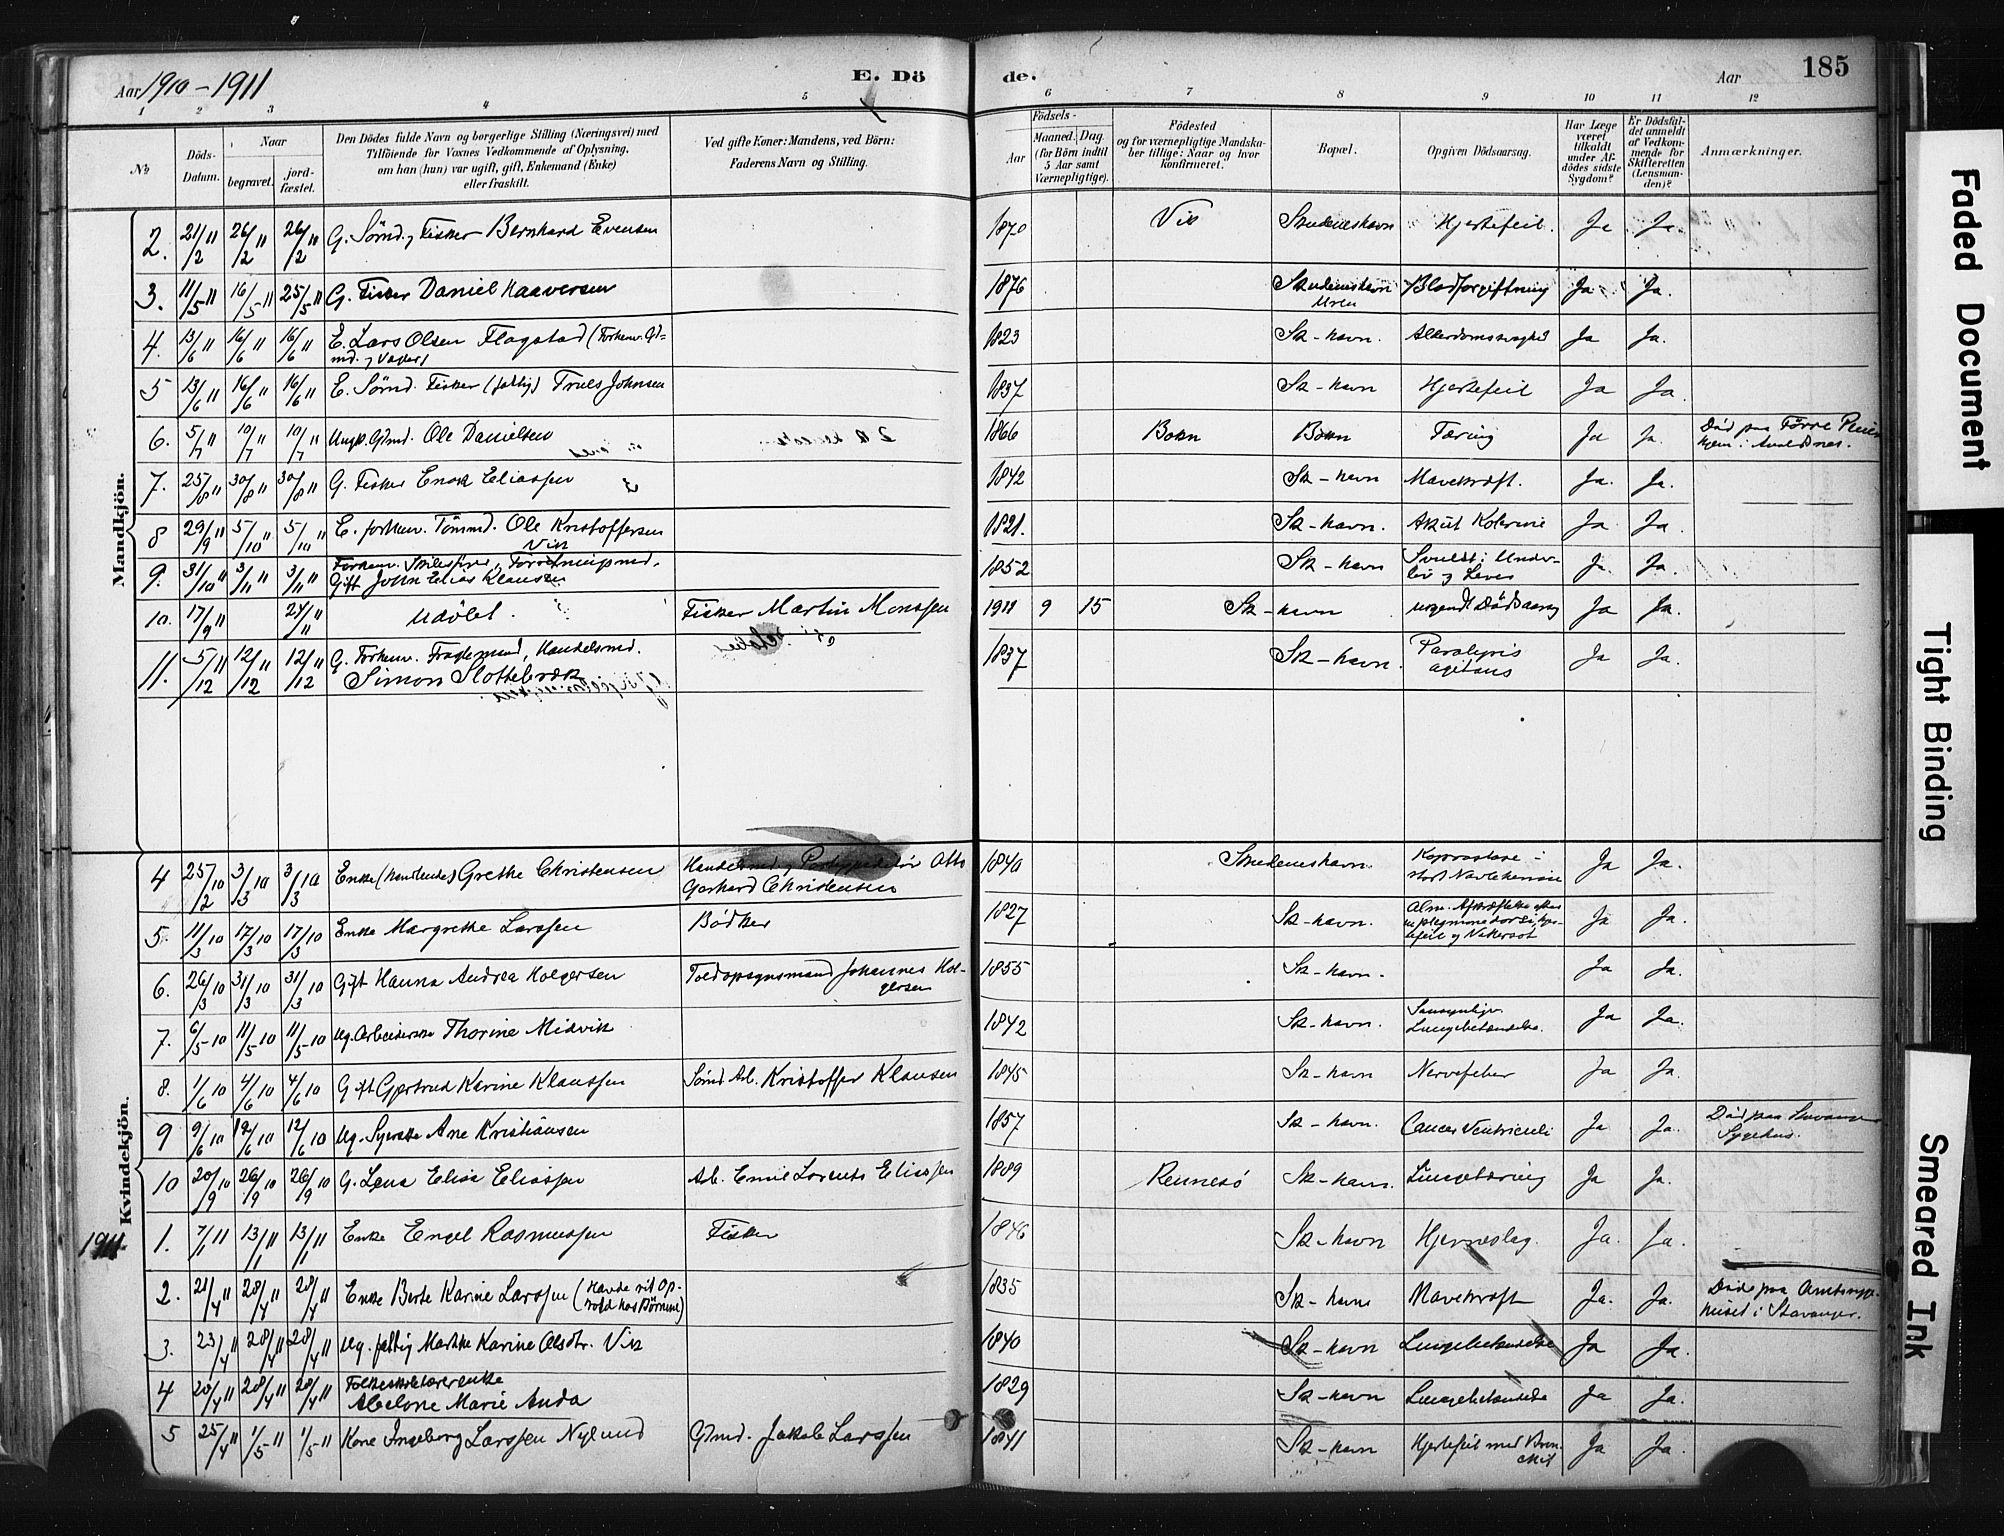 Aar 1910-1911
E. Döde.
Aar
185
1 2 3 4 5 6 7 8 9 10 11 12
No
Döds-Datum.
Naar
begravet.
jord-fæstet.
Den Dödes fulde Navn og borgerlige Stilling (Næringsvei) med
Tilföiende for Voxnes Vedkommende af Oplysning,
om han (hun) var ugift, gift, Enkemand (Enke)
eller fraskilt.
Ved gifte Koner: Mandens, ved Börn:
Faderens Navn og Stilling.
Födsels-
Aar
Maaned. Dag.
(for Börn indtil
5 Aar samt
Værnepligtige).
Födested
og for værnepligtige Mandska-
ber tillige: Naar og hvor
konfirmeret.
Bopæl.
Opgiven Dödsaarsag.
Har Læge
været
tilkaldt
under Af-
dödes sidste
Sygdom?
Er Dödsfal-
det anmeldt
af Vedkom-
mende for
Skifteretten
(Lensman-
den)?
Anmærkninger.
Mandkjön.
2. 21/2 11 26/2 11 26/2 11 G. Sømd. og Fisker Bernhard Evensen 1870 Vik Skudeneshavn Hjertefeil. Ja Ja.
3. 11/5 11 16/5 11 25/5 11 G. Fisker Daniel Haaversen 1876 Skudeneshavn Blodforgiftning Ja Ja.
4. 13/6 11 16/6 11 16/6 11 E. Lars Olsen Flagstad (Forhenv. G- 1823 Sk-havn. Alderdomssvaghed Ja Ja.
5 13/6 11 16/6 11 16/6 11 E. Sømd. Fisker (fattig) Truls Johnsen 1837 Sk-havn Hjertefeil Ja Ja
6. 5/7 11 10/7 11 10/7 11 Ungk. Gdmd. Ole Danielsen 1866 Bokn Bokn Tæring Ja Ja. Død paa Førre Pleie
hjem i Avaldsnes.
7. 25/8 11 30/8 11 30/8 11 G. Fisker Enok Eliassen 1842 Sk-havn Mavekræft. Ja. Ja.
8 29/9 11 5/10 11 5/10 11 E. forhenv. Tømmd. Ole Kristoffersen
Vik 1821. Sk-havn. Akut Kolerine Ja Ja.
9. 31/10 11 3/11 3/11 Forhenv. Skibsfører, Forretningsmd.
Gift John Elias Klausen 1852 Sk-havn Svulst i Under-
liv og Lever Ja. Ja.
10. 17/9 11 24/11 Udøbt. Fisker Martin Monssen 1911 9 15 Sk-havn uvgendt Dødsaarsag Ja Ja.
11. 5/12 11 12/12 11 12/12 11 G. Forhenv. Fragtemand, Handelsmd.
Simon Slottebræk 1837 Sk-havn. Paralysis
agitans Ja Ja.
Kvindekjön.
4 25/2 10 3/3 10 3/3 10 Enke (Handlende) Grethe Christensen Handelsmd. og Postexpeditør Otto
Gerhard Christensen 1840 Skudeneshavn. Ja Ja.
5. 11/3 10 17/3 10 17/3 10 Enke Margrethe Larssen Bødker 1827 Sk-havn. Ja Ja.
6. 26/3 10 31/3 10 31/3 10 Gift Hanna Andrea Holgersen Toldopsynsmand Johannes Hol-
gersen 1855 Sk-havn. Ja Ja.
7. 6/5 10 11/5 10 11/5 10 Ug. Arbeiderske Thorine Midvik 1842 Sk-havn. Sansynligv.
Lungebetændelse. Ja Ja.
8. 1/6 10 4/6 10 4/6 10 Gift Gjertrud Karine Klaussen Sømd. Arb. Kristoffer Klausen 1845 Sk-havn Nervefeber Ja Ja.
9 9/6 10 12/6 10 12/6 10 Ug. Syerske Ane Kristiansen 1857 Sk-havn. Cancer Ventriculi Ja Ja. Død paa Stavanger
Sygehus.
10 20/9 10 26/9 10 26/9 10 G. Lena Elisa Eliassen Arb. Emil Lorents Eliassen 1889 Rennesø Sk-havn. Lungetæring Ja Ja.
1911.
1. 7/1 11 13/1 11 13/1 11 Enke Engel Rasmussen Fisker 1846 Sk-havn Hjerneslag. Ja. Ja.
2. 21/4 11 28/4 11 28/4 11 Enke Berte Karine Larssen (Havde sit Op-
hold hos Børnene) 1835 Sk-havn Mavekræft Ja. Ja. Døde paa Amtssyge-
huset i Stavanger.
3. 23/4 11 28/4 11 28/4 11 Ug. fattig Marthe Karine Olsdtr. Vik 1840 Sk-havn Lungebetændelse Ja Ja.
4 20/4 11 28/4 11 28/4 11 Folkeskolelærerenke
Abelone Marie Anda 1829 Sk-havn Lungebetændelse Ja Ja.
5 25/4 11 1/5 11 1/5 11 Kone Ingeborg Larssen Nylund Gdmd. Jakob Larssen 1841 Sk-havn Hjertefeil med Bron-
chit Ja Ja.
Faded Document
Tight Binding
Smeared Ink